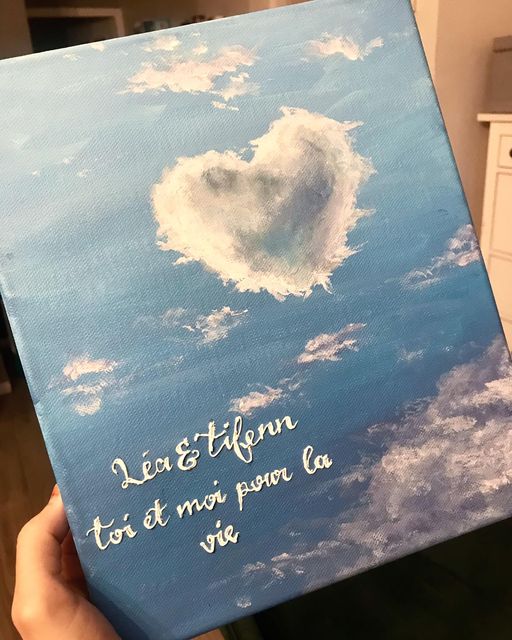 Léa & tifenn
toi et moi pour la
vie